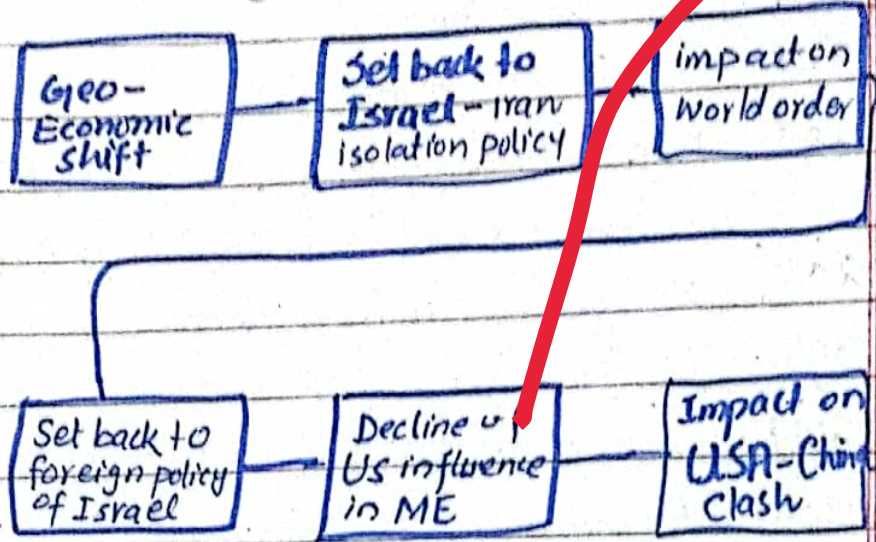 Geo-
Economic
shift
Set back to
Israel-iran
isolation policy
impact on
world order
Set back to
foreign policy
of Israel
Decline of
US influence
in ME
Impact on
USA-China
Clash